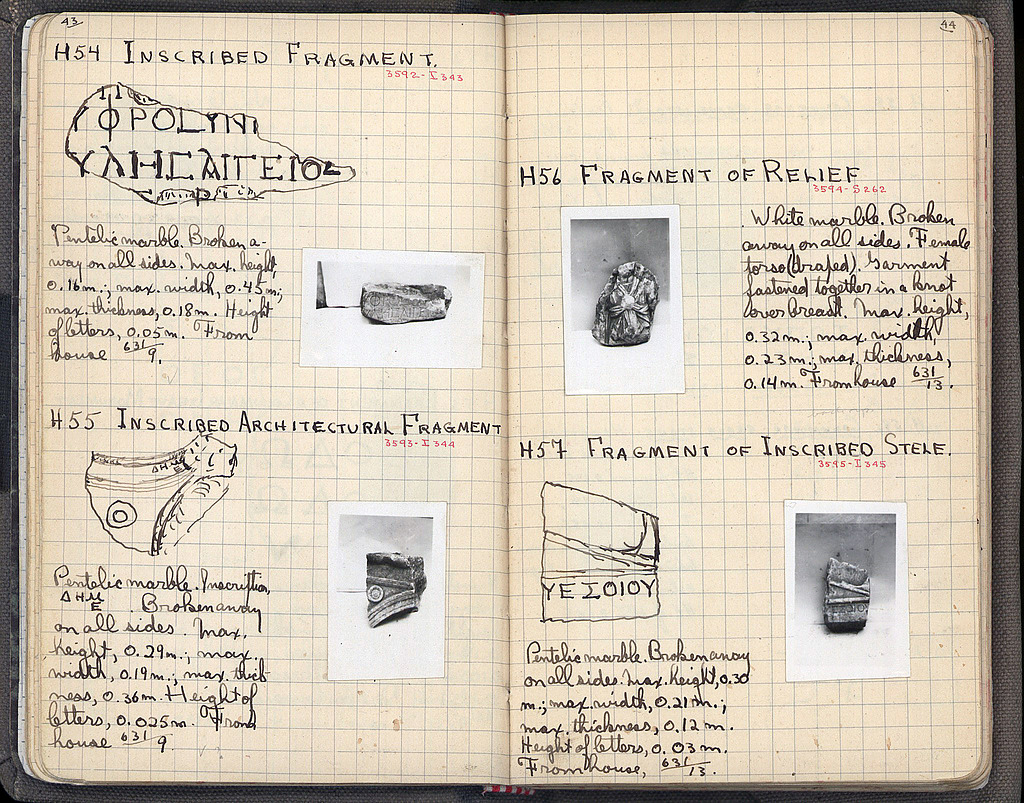 43
H54 INSCRIBED FRAGMENT.
3592-I 343
ΥΛΗΣΑΙΓΕΙΟΣ
Pentelic marble. Broken a-
way on all sides. Max. height,
0.16 m.; max. width, 0.45 m;
max. thickness, 0.18 m. Height
of letters, 0.05 m. From
house 631/9.
H55 INSCRIBED ARCHITECTURAL FRAGMENT
3593-I 344
ΔΗΜ
Ε
Pentelic marble. Inscription,
ΔΗΜ
Ε . Broken away
on all sides. Max.
height, 0.29 m.; max.
width, 0.19 m.; max. thick-
ness, 0.36 m. Height of
letters, 0.025 m. From
house 631/9.
44
H56 FRAGMENT OF RELIEF
3594-S 262
White marble. Broken
away on all sides. Female
torso (draped). Garment
fastened together in a knot
over breast. Max. height,
0.32 m.; max. width,
0.23 m.; max. thickness,
0.14 m. From house 631/13.
H57 FRAGMENT OF INSCRIBED STELE.
3595-I 345
ΥΕΣΟΙΟΥ
Pentelic marble. Broken away
on all sides. Max. height, 0.30
m.; max. width, 0.21 m.;
max. thickness, 0.12 m.
Height of letters, 0.03 m.
From house, 631/13.